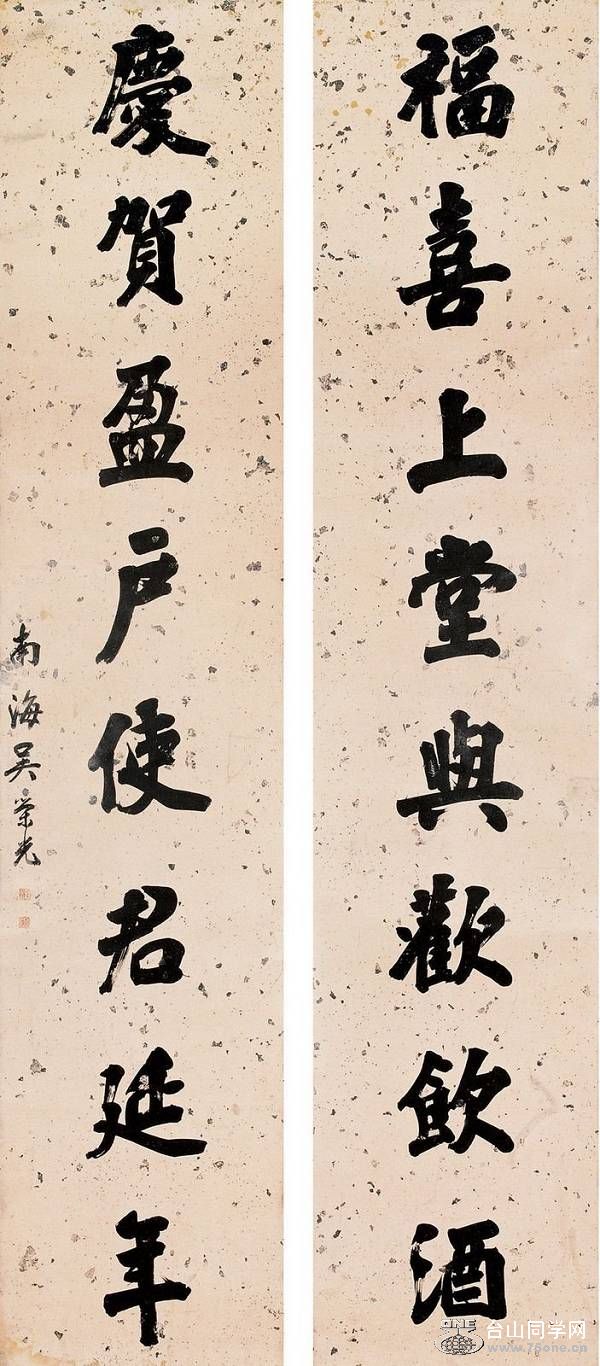 福喜上堂與歡飲酒
慶賀盈戶使君延年
南海吳榮光
ONE
台山同学网
www.75one.cn